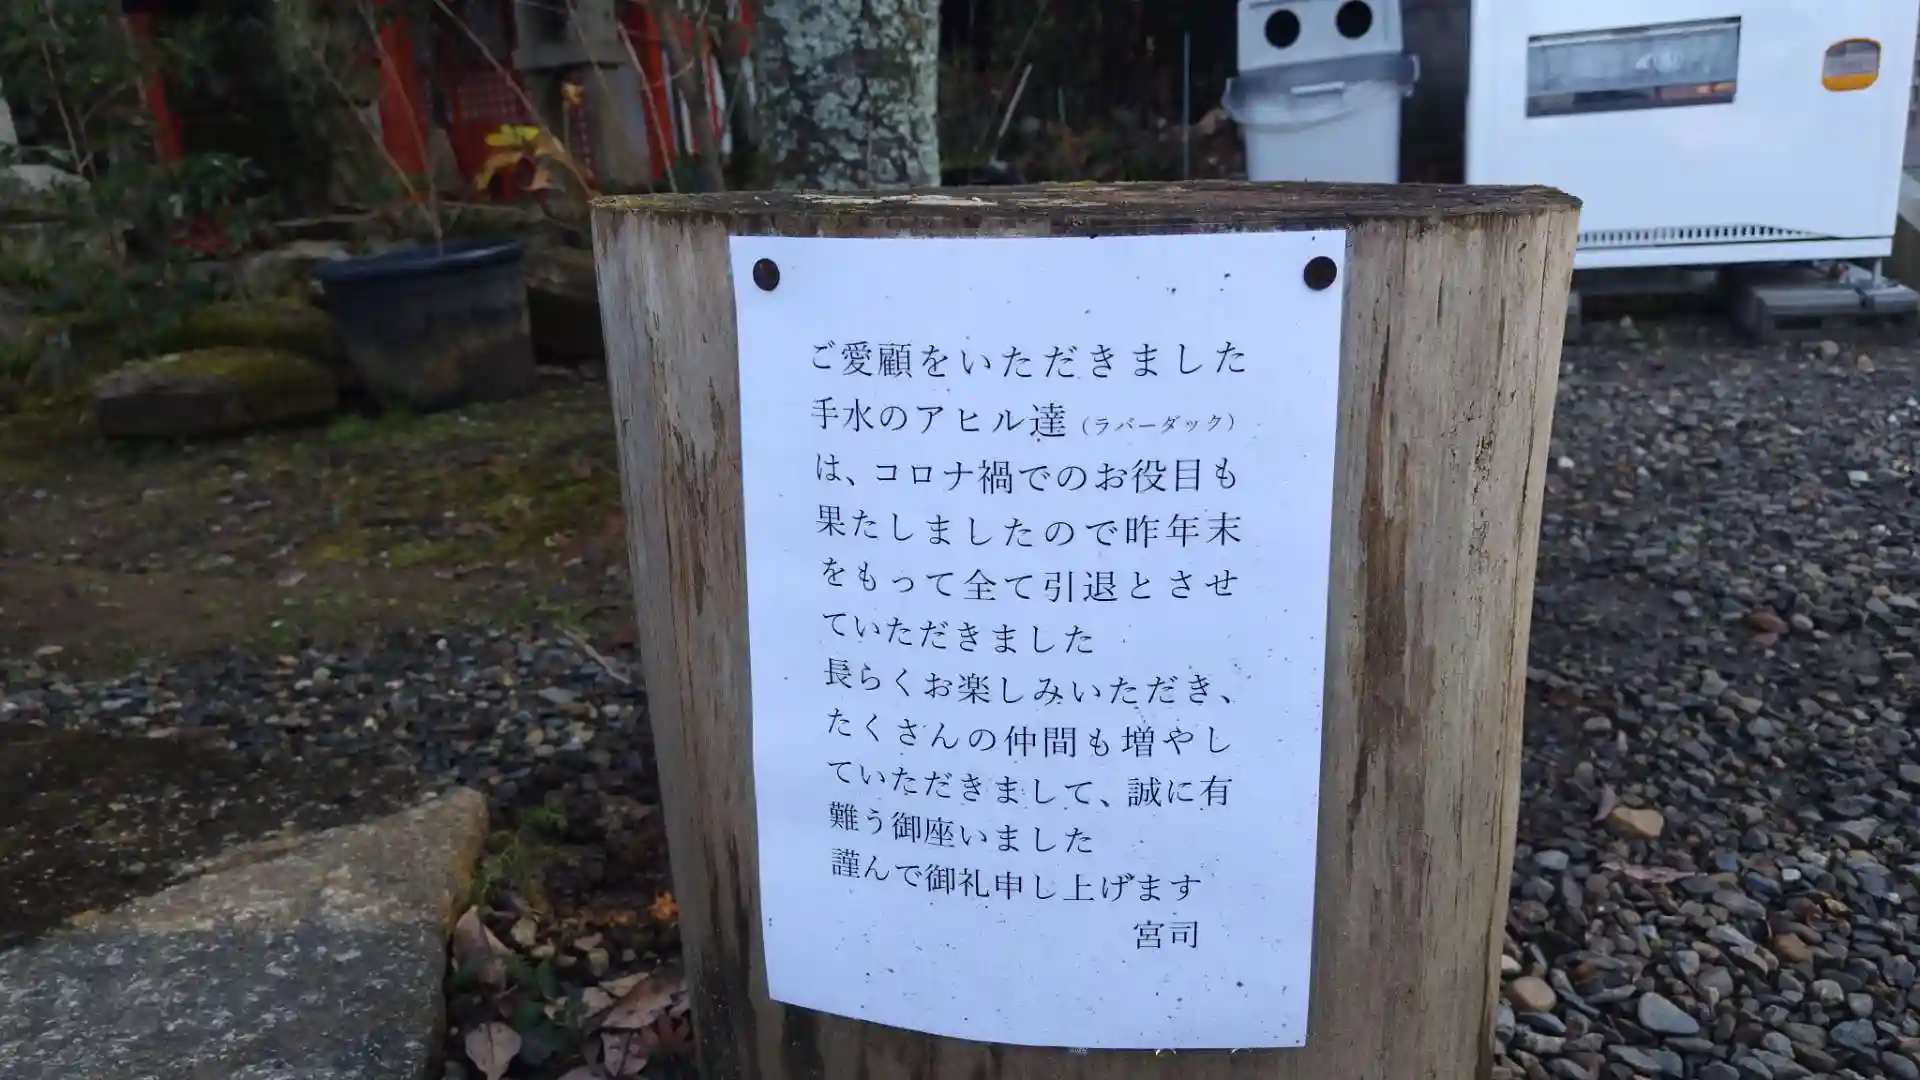 ご愛顧をいただきました
手水のアヒル達(ラバーダック)
は、コロナ禍でのお役目も
果たしましたので昨年末
をもって全て引退とさせ
ていただきました
長らくお楽しみいただき、
たくさんの仲間も増やし
ていただきまして、誠に有
難う御座いました
謹んで御礼申し上げます
宮司